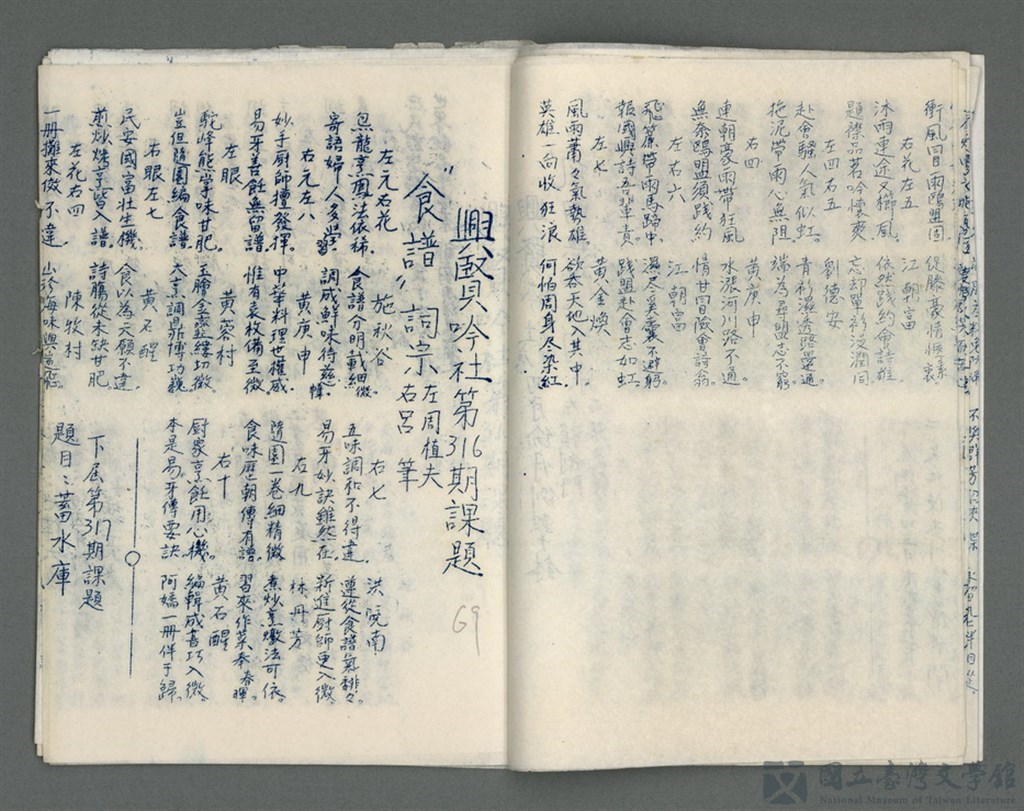 衝風冒雨鷗盟固
從騰豪情愜素衷
右花左五
江朝富
沐雨更途又櫛風
依然踐約會詩雄
題襟品茗吟懷爽
忘却單衫浸潤同
左四右五
劉德安
赴會騷人氣似虹
青衫濕透路還通
拖泥帶雨心無阻
端為尋盟志不窮
右四
黃庚申
連朝豪雨帶狂風
水漲河川路不通
無奈鷗盟須踐約
情甘冒險會詩翁
左右六
江朝富
飛簾帶雨馬路中
濕尽奚囊不避窮
報國興詩吾輩責
踐盟赴會志如虹
左七
黃金煥
風雨蕭々氣勢雄
欲吞天地入其中
英雄一向收狂浪
何怕周身尽染紅
興賢吟社第316期課題
“食譜”詞宗 左周植夫 右呂筆
左元右花
施秋谷
烹龍烹鳳法依稀
食譜分明載細微
寄語婦人多學習
調成鮮味待慈幃
右元左八
黃庚申
妙手厨師擅發揮
中華料理也權威
易牙善飪無留譜
惟有袁枚備至微
左眼
黃容村
駝峰熊掌味甘肥
玉膾金虀縷切微
豈但隨園編食譜
大烹調鼎傳功巍
右眼左七
黃石醒
民安國富壯生機
食以為天願不違
煎炒燉烹皆入譜
詩腸從未缺甘肥
左花右四
陳牧村
一冊攤來傚不違
右七
洪皖南
五味調和不得違
遵從食譜氣馡々
易牙妙訣雖然在
新進厨師更入微
左九
林丹芳
隨園一卷細精微
煮炒烹燉法可依
食味歷朝傳有譜
習來作菜奉春暉
右十
黃石醒
厨家烹飪用心機
編輯成書巧入微
本是易牙傳要訣
阿嬌一冊伴于歸
下屆第317期課題
題目：蓄水庫
69
國立臺灣文學館
National Museum of Taiwan Literature